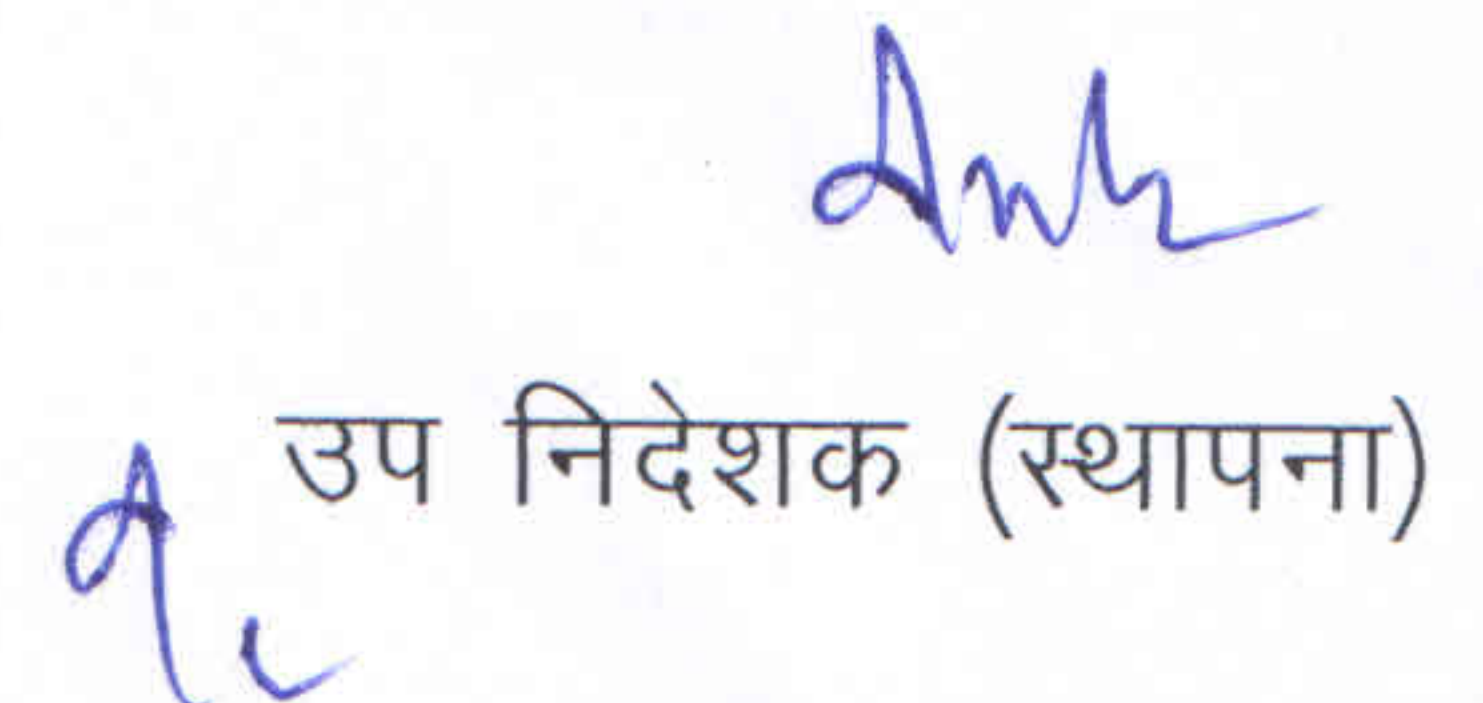 उप निदेशक (स्थापना)